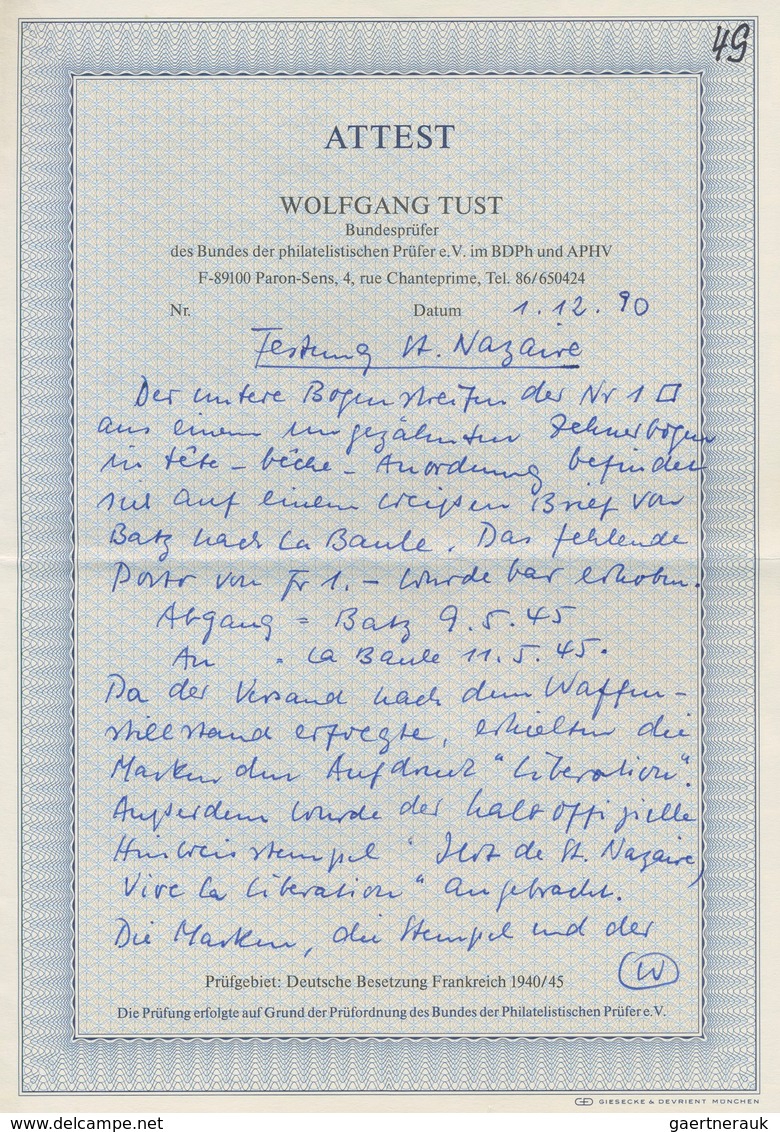 49
ATTEST
WOLFGANG TUST
Bundesprüfer
des Bundes der philatelistischen Prüfer e.V. im BDPh und APHV
F-89100 Paron-Sens, 4, rue Chanteprime, Tel. 86/650424
Nr. Datum 1.12.90
Festung St. Nazaire
Der untere Bogenstreifen der Nr 1 □
aus einem ungezähnten Zehnerbogen
in tête-bêche-Anordnung befindet
sich auf einem weißen Brief von
Batz nach La Baule. Das fehlende
Porto von Fr 1.- wurde bar erhoben.
Abgang = Batz 9.5.45
An = La Baule 11.5.45.
Da der Versand nach dem Waffen-
stillstand erfolgte, erhielten die
Marken den Aufdruck "Liberation".
Außerdem wurde der halboffizielle
Hinweisstempel "Ilot de St. Nazaire,
Vive la Liberation" angebracht.
Die Marken, die Stempel und der
W
Prüfgebiet: Deutsche Besetzung Frankreich 1940/45
Die Prüfung erfolgte auf Grund der Prüfordnung des Bundes der Philatelistischen Prüfer e.V.
GIESECKE & DEVRIENT MÜNCHEN
www.delcampe.net
gaertnerauk